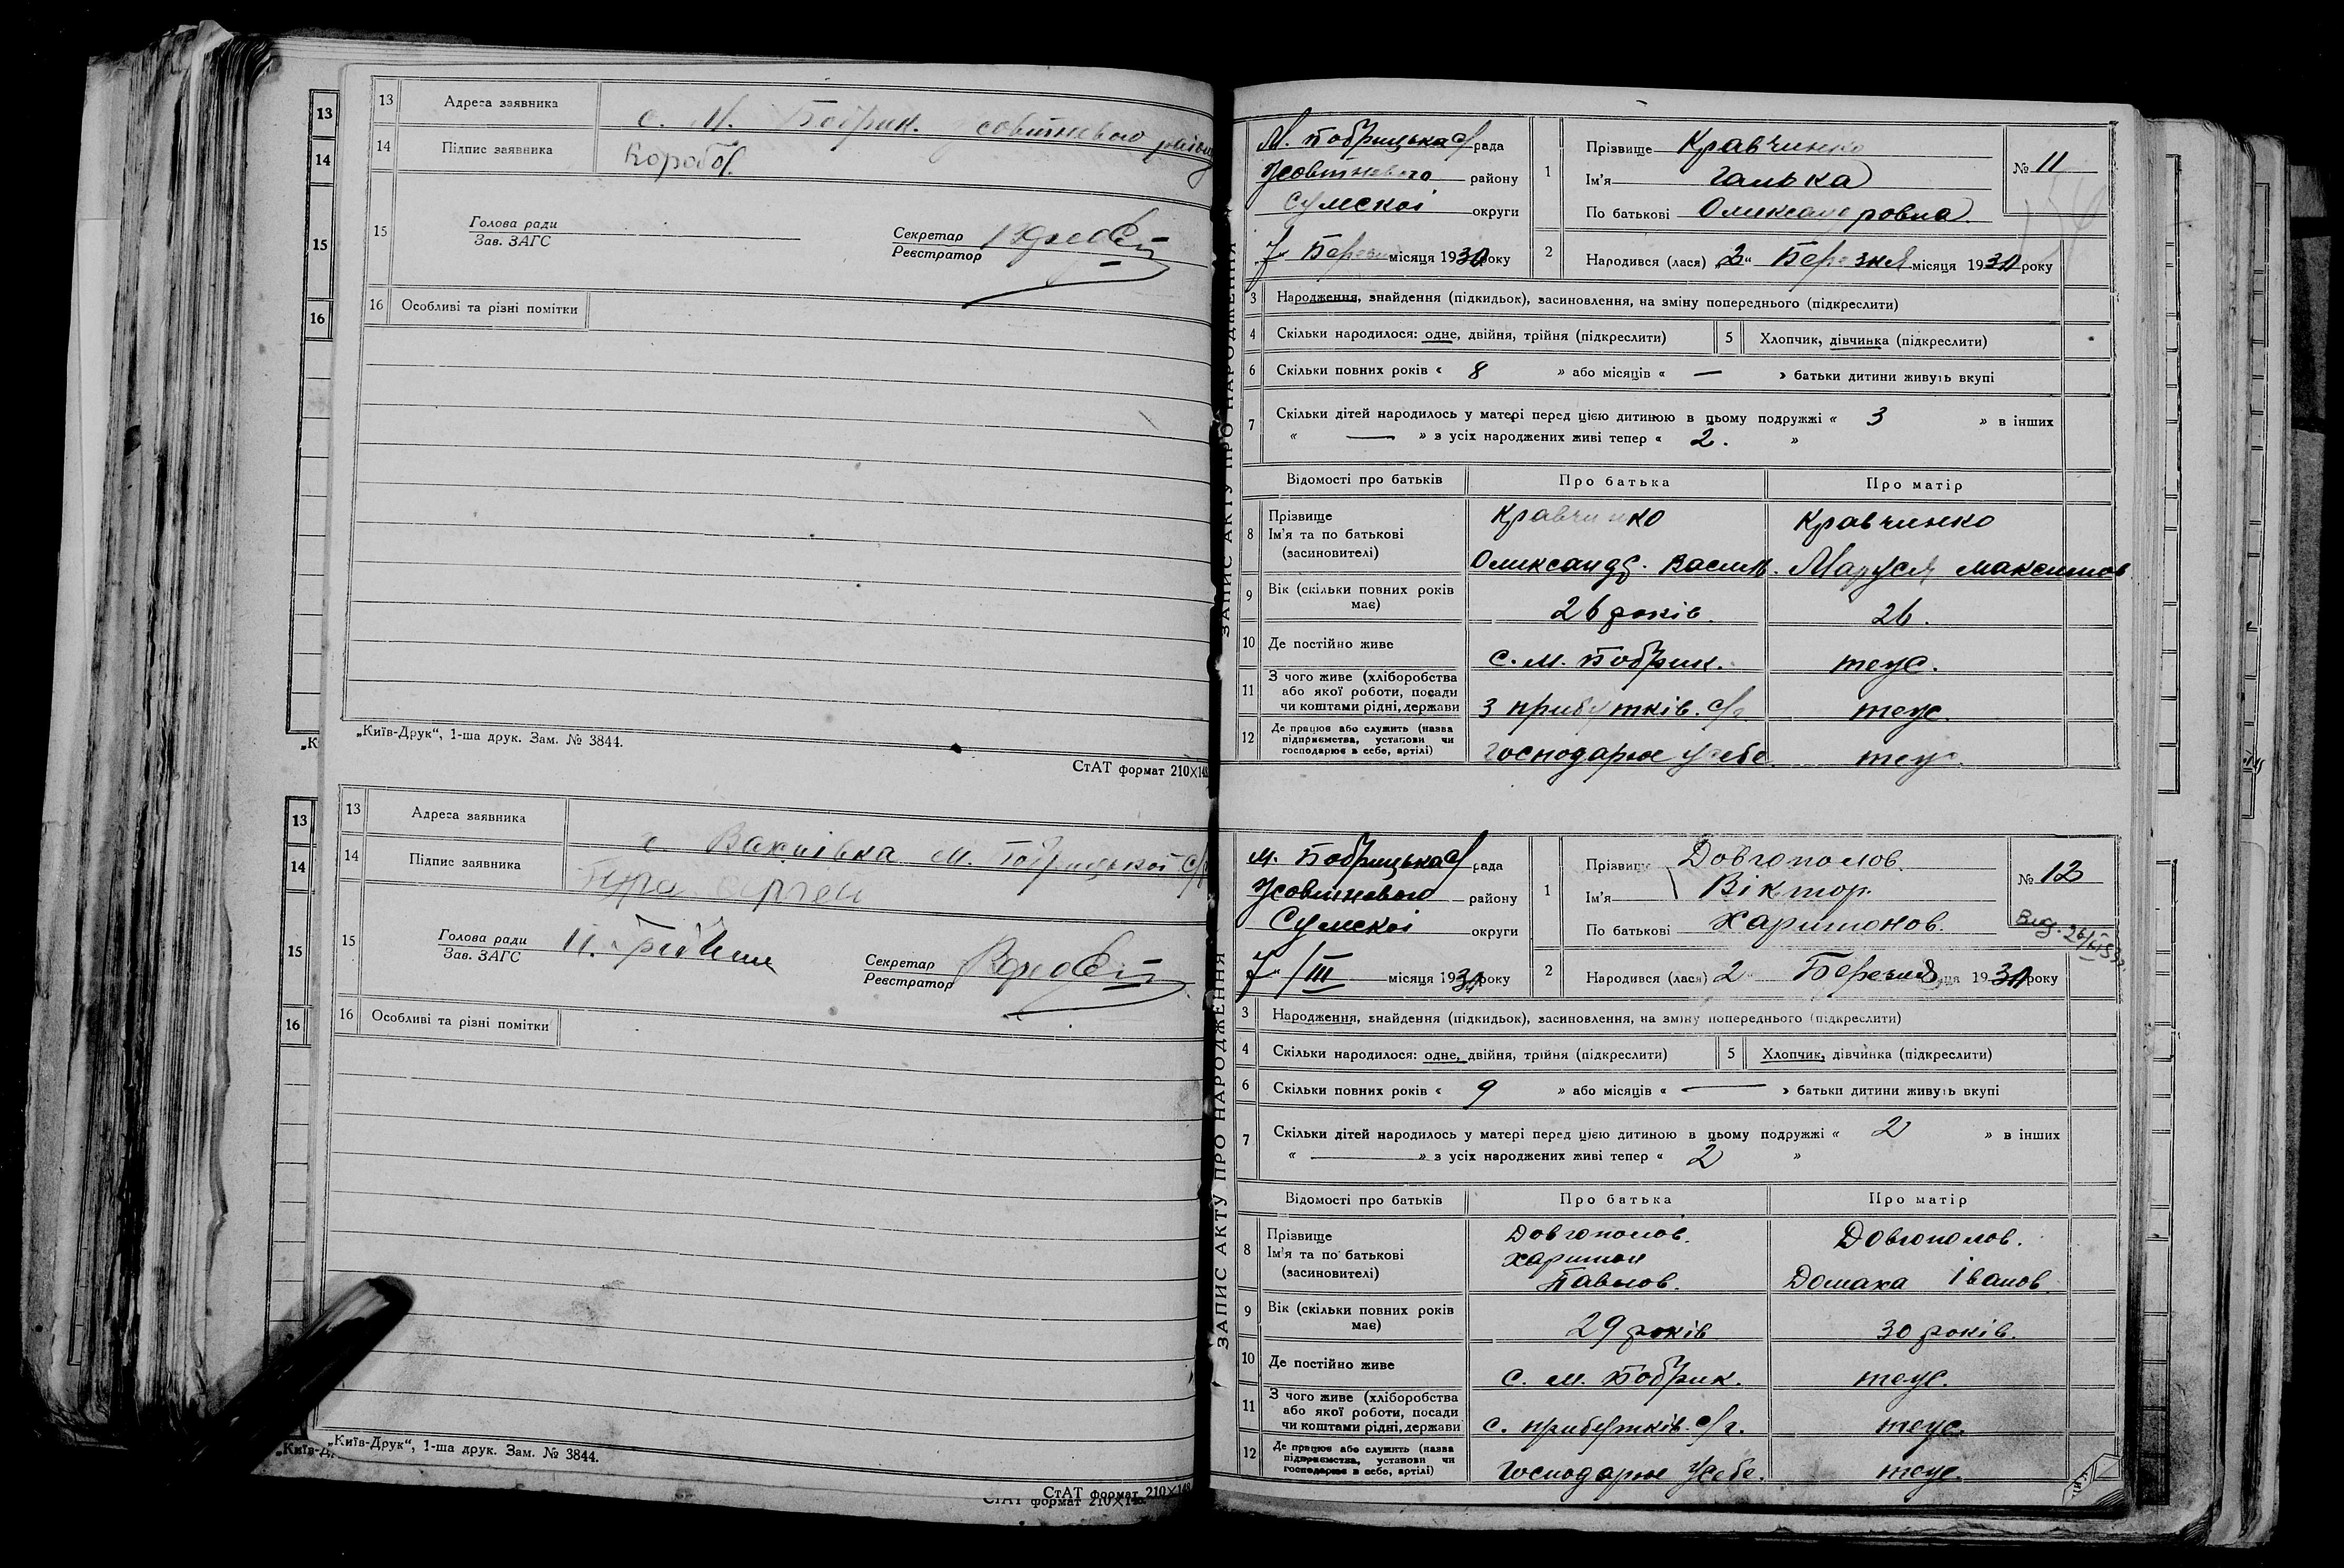 13 Адреса заявника с. М. Бобрик.
14 Підпис заявника
15 Голова ради
Зав. ЗАГС
Секретар
Реєстратор
16 Особливі та різні помітки
„Київ-Друк“, 1-ша друк. Зам. № 3844.
СтАТ формат 210×148
13 Адреса заявника
14 Підпис заявника
15 Голова ради
Зав. ЗАГС
Секретар
Реєстратор
16 Особливі та різні помітки
„Київ-Друк“, 1-ша друк. Зам. № 3844.
СтАТ формат 210×148
13
14
15
16
„К
13
14
15
16
„Київ-Д
СтАТ формат 210×148
ЗАПИС АКТУ ПРО НАРОДЖЕННЯ
М. Бобрицька с/ рада
району
Сумскої округи
7 місяця 1930 року
1 Прізвище Кравчинко
Ім'я Галька
По батькові Олександровна
№ 11
2 Народився (лася) „2“ Березня місяця 1930 року
3 Народження, знайдення (підкидьок), засиновлення, на зміну попереднього (підкреслити)
4 Скільки народилося: одне, двійня, трійня (підкреслити)
5 Хлопчик, дівчинка (підкреслити)
6 Скільки повних років « 8 » або місяців « — » батьки дитини живуть вкупі
7 Скільки дітей народилось у матері перед цією дитиною в цьому подружжі « 3 » в інших
« — » з усіх народжених живі тепер « 2. »
Відомості про батьків Про батька Про матір
8 Прізвище
Ім'я та по батькові
(засиновителі)
Кравчинко Кравчинко
Олександ. Василь. Маруся Максимов
9 Вік (скільки повних років має) 26 років. 26.
10 Де постійно живе с. м. Бобрик. теус.
11 З чого живе (хліборобства
або якої роботи, посади
чи коштами рідні, держави
з прибутків. с/г теус.
12 Де працює або служить (назва
підприємства, установи чи
господарює в себе, артілі)
господарює усебе теус.
ЗАПИС АКТУ ПРО НАРОДЖЕННЯ
м. Бобрицька с/ рада
району
Сумскої округи
7/III місяця 1930 року
1 Прізвище Довгополов.
Ім'я Віктор.
По батькові Харитонов.
№ 12
2 Народився (лася) 2 Березня 1930 року
3 Народження, знайдення (підкидьок), засиновлення, на зміну попереднього (підкреслити)
4 Скільки народилося: одне, двійня, трійня (підкреслити)
5 Хлопчик, дівчинка (підкреслити)
6 Скільки повних років « 9 » або місяців « — » батьки дитини живуть вкупі
7 Скільки дітей народилось у матері перед цією дитиною в цьому подружжі « 2 » в інших
« — » з усіх народжених живі тепер « 2 »
Відомості про батьків Про батька Про матір
8 Прізвище
Ім'я та по батькові
(засиновителі)
Довгополов. Довгополов.
Харитон
Павлов. Домаха Іванов.
9 Вік (скільки повних років має) 29 років 30 років.
10 Де постійно живе с. м. Бобрик. теус.
11 З чого живе (хліборобства
або якої роботи, посади
чи коштами рідні, держави
с. прибутків. с/г. теус.
12 Де працює або служить (назва
підприємства, установи чи
господарює в себе, артілі)
Господарює Усебе. теус.